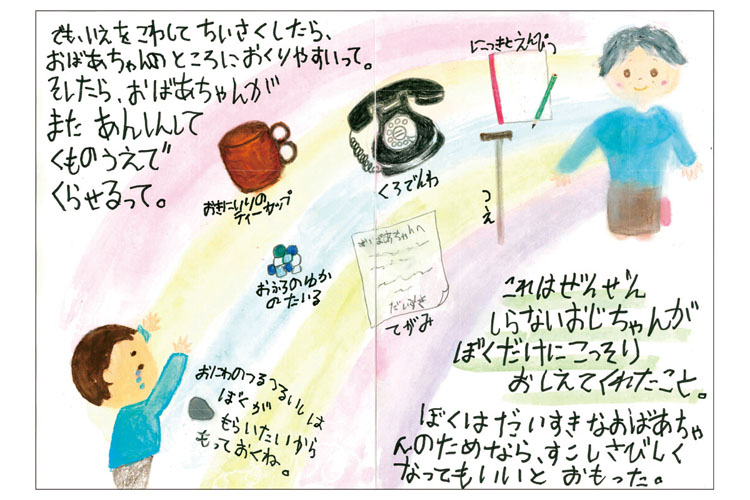 でも、いえを こわして ちいさくしたら、
おばあちゃんの ところに おくりやすいって。
そしたら、おばあちゃんが
また あんしんして
くものうえで
くらせるって。
おきにいりの
ティーカップ
くろでんわ
にっきとえんぴつ
つえ
おふろのゆか
のたいる
おばあちゃんへ
だいすき
てがみ
おにわのつるつるいしは
ぼくが
もらいたいから
もっておくね。
これは ぜんぜん
しらないおじちゃんが
ぼくだけに こっそり
おしえてくれたこと。
ぼくは だいすきな おばあちゃ
んの ためなら、すこし さびしく
なっても いいと おもった。